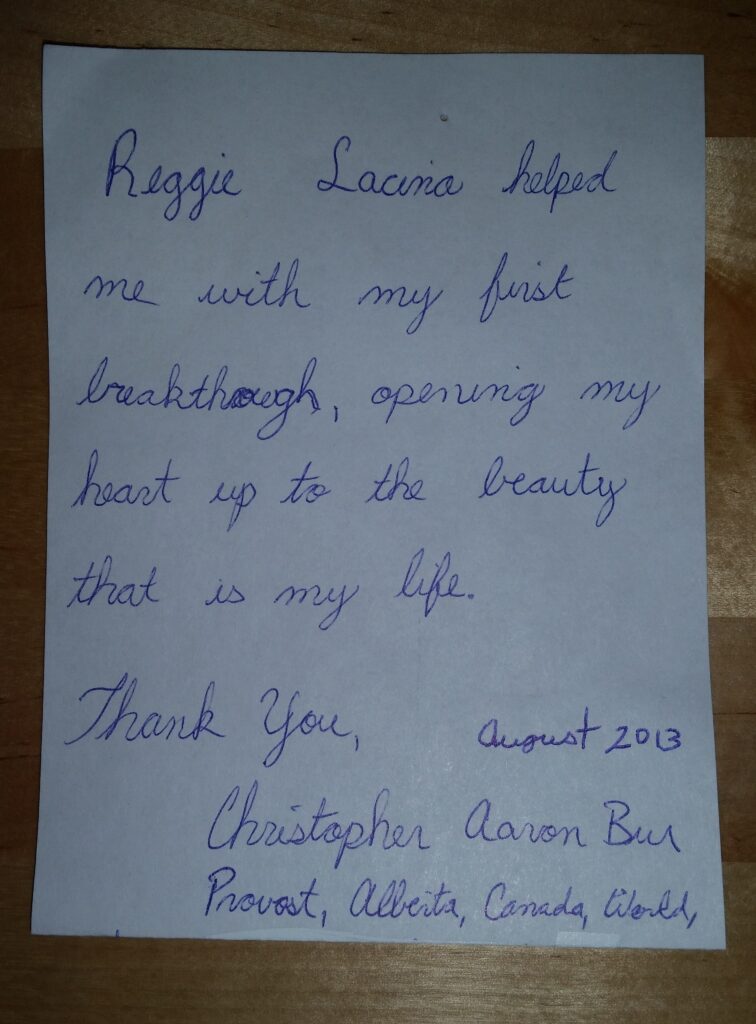 Reggie Lacina helped
me with my first
breakthough, opening my
heart up to the beauty
that is my life.
Thank You,
August 2013
Christopher Aaron Bur
Provost, Alberta, Canada, World,